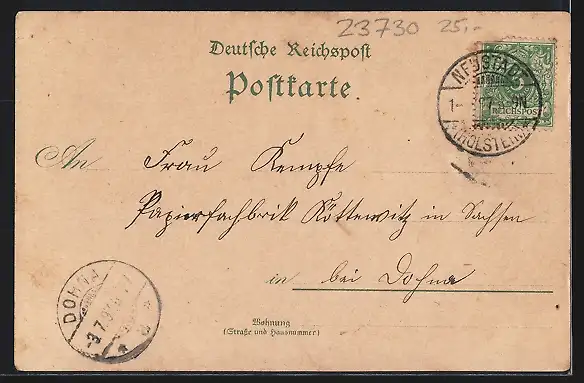 23730 25,-
Deutsche Reichspost
Postkarte.
NEUSTADT
1- 7 9N
(HOLSTEIN)
REICHSPOST
An Frau Kempfe
Papierfachbrik Köttewitz in Sachsen
in bei Dohna
DOHNA
Wohnung
(Straße und Hausnummer)